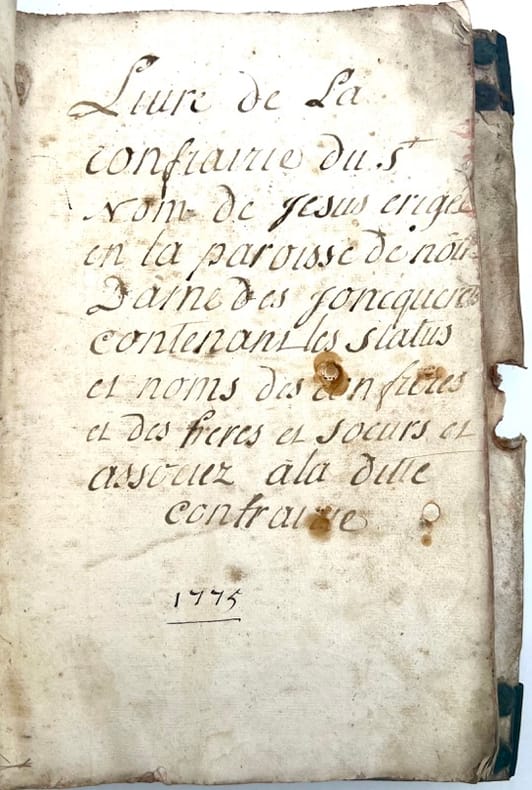 Liure de La
confrairie du St
Nom de Jesus erigée
en la paroisse de nôtre
Dame des Joncquerets
contenant les status
et noms des confreres
et des freres et soeurs et
associez à la ditte
confrairie
1775